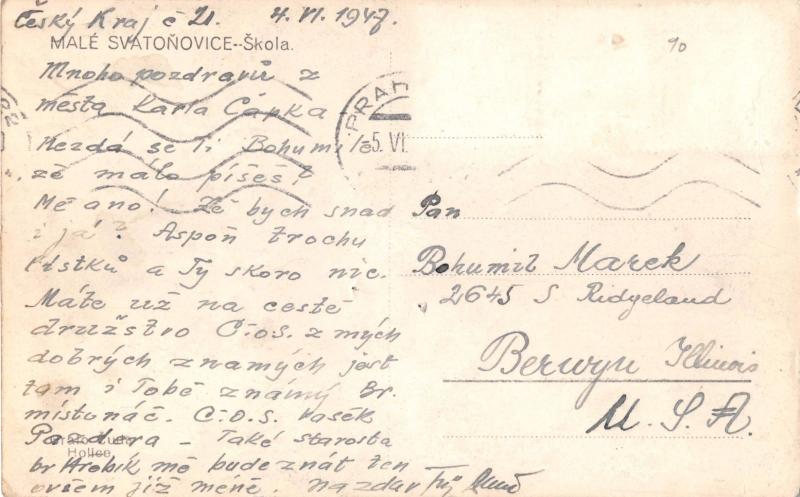 Český Kraj č 21. 4. VI. 1947.
MALÉ SVATOŇOVICE--Škola.
Mnoho pozdravů z
města Karla Čapka
Nezdá se Ti Bohumile
že málo píšeš?
Mě ano! Že bych snad
i já? Aspoň trochu
lístků a Ty skoro nic.
Máte už na cestě
družstvo Č.O.S. z mých
dobrých známých jest
tam i Tobě známý Br.
místonáč. Č.O.S. Vašek
Pazdera - Také starosta
br Hřebík mě bude znát ten
ovšem již méně. Nazdar Tvůj
Foto
Holice
PRAH
5. VI.
90
Pan
Bohumil Marek
2645 S Ridgeland
Berwyn Illinois
U. S. A.